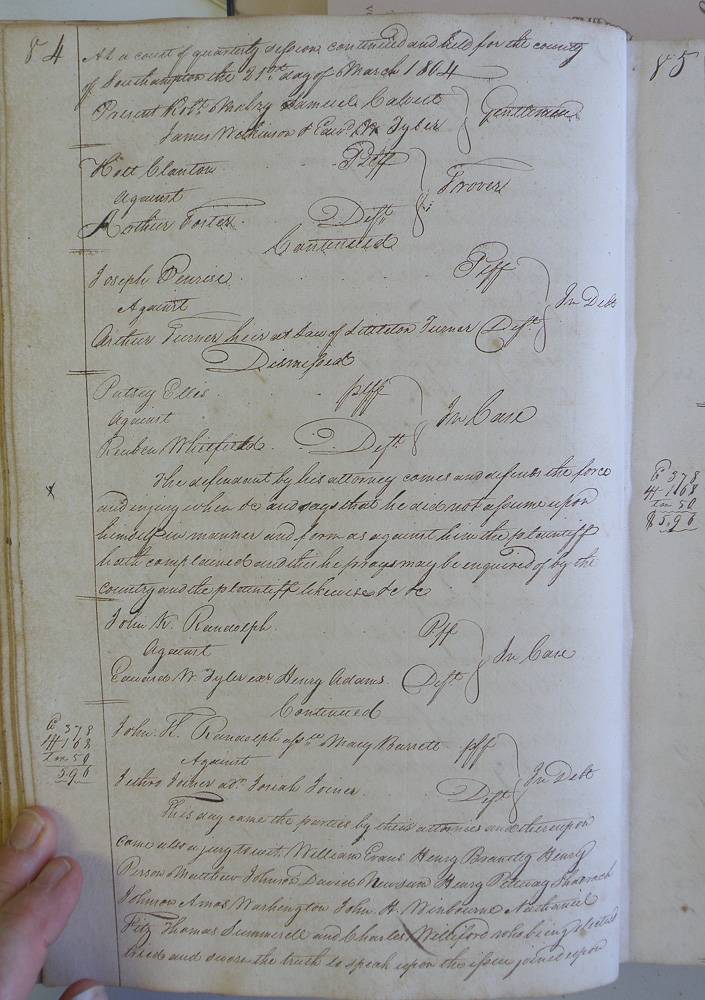 84
At a court of quarterly sessions continued and held for the county
of Southampton the 21st day of March 1804
Present Robt. Mabry Samuel Calvert
James Wilkinson & Edwd. W. Tyler
Gentlemen
Holl Clanton Plff
Against
Arthur Foster Deft.
Trover
Continued
Joseph Penrise Plff
Against
Arthur Turner heir at Law of Littleton Turner Deft.
In Debt
Dismissed
Patsey Ellis plff
Against
Reuben Whitfield Deft.
In Case
The defendant by his attorney comes and defends the force
and injury when &c and says that he did not assume upon
himself in manner and form as against him the plaintiff
hath complained and this he prays may be enquired of by the
country and the plaintiff likewise &c &c
John K. Randolph Plff
Against
Edward W. Tyler exr Henry Adams Deft.
In Case
Continued
C 378
4-168
tm 50
5.96
John K. Randolph assee. Macy Barrett plff
Against
Jethro Joiner adr. Josiah Joiner Deft
In Debt
This day came the parties by their attornies and thereupon
came also a jury to wit. William Evans Henry Brantly Henry
Person Matthew Johnson David Newsum Henry Peteway Shadrach
Johnson Amos Washington John H. Winbourne Nathaniel
Fitz Thomas Summerell and Charles Williford who being elected
tried and sworn the truth to speak upon the issue joined upon
85
C 378
4-168
tm 50
$5.96